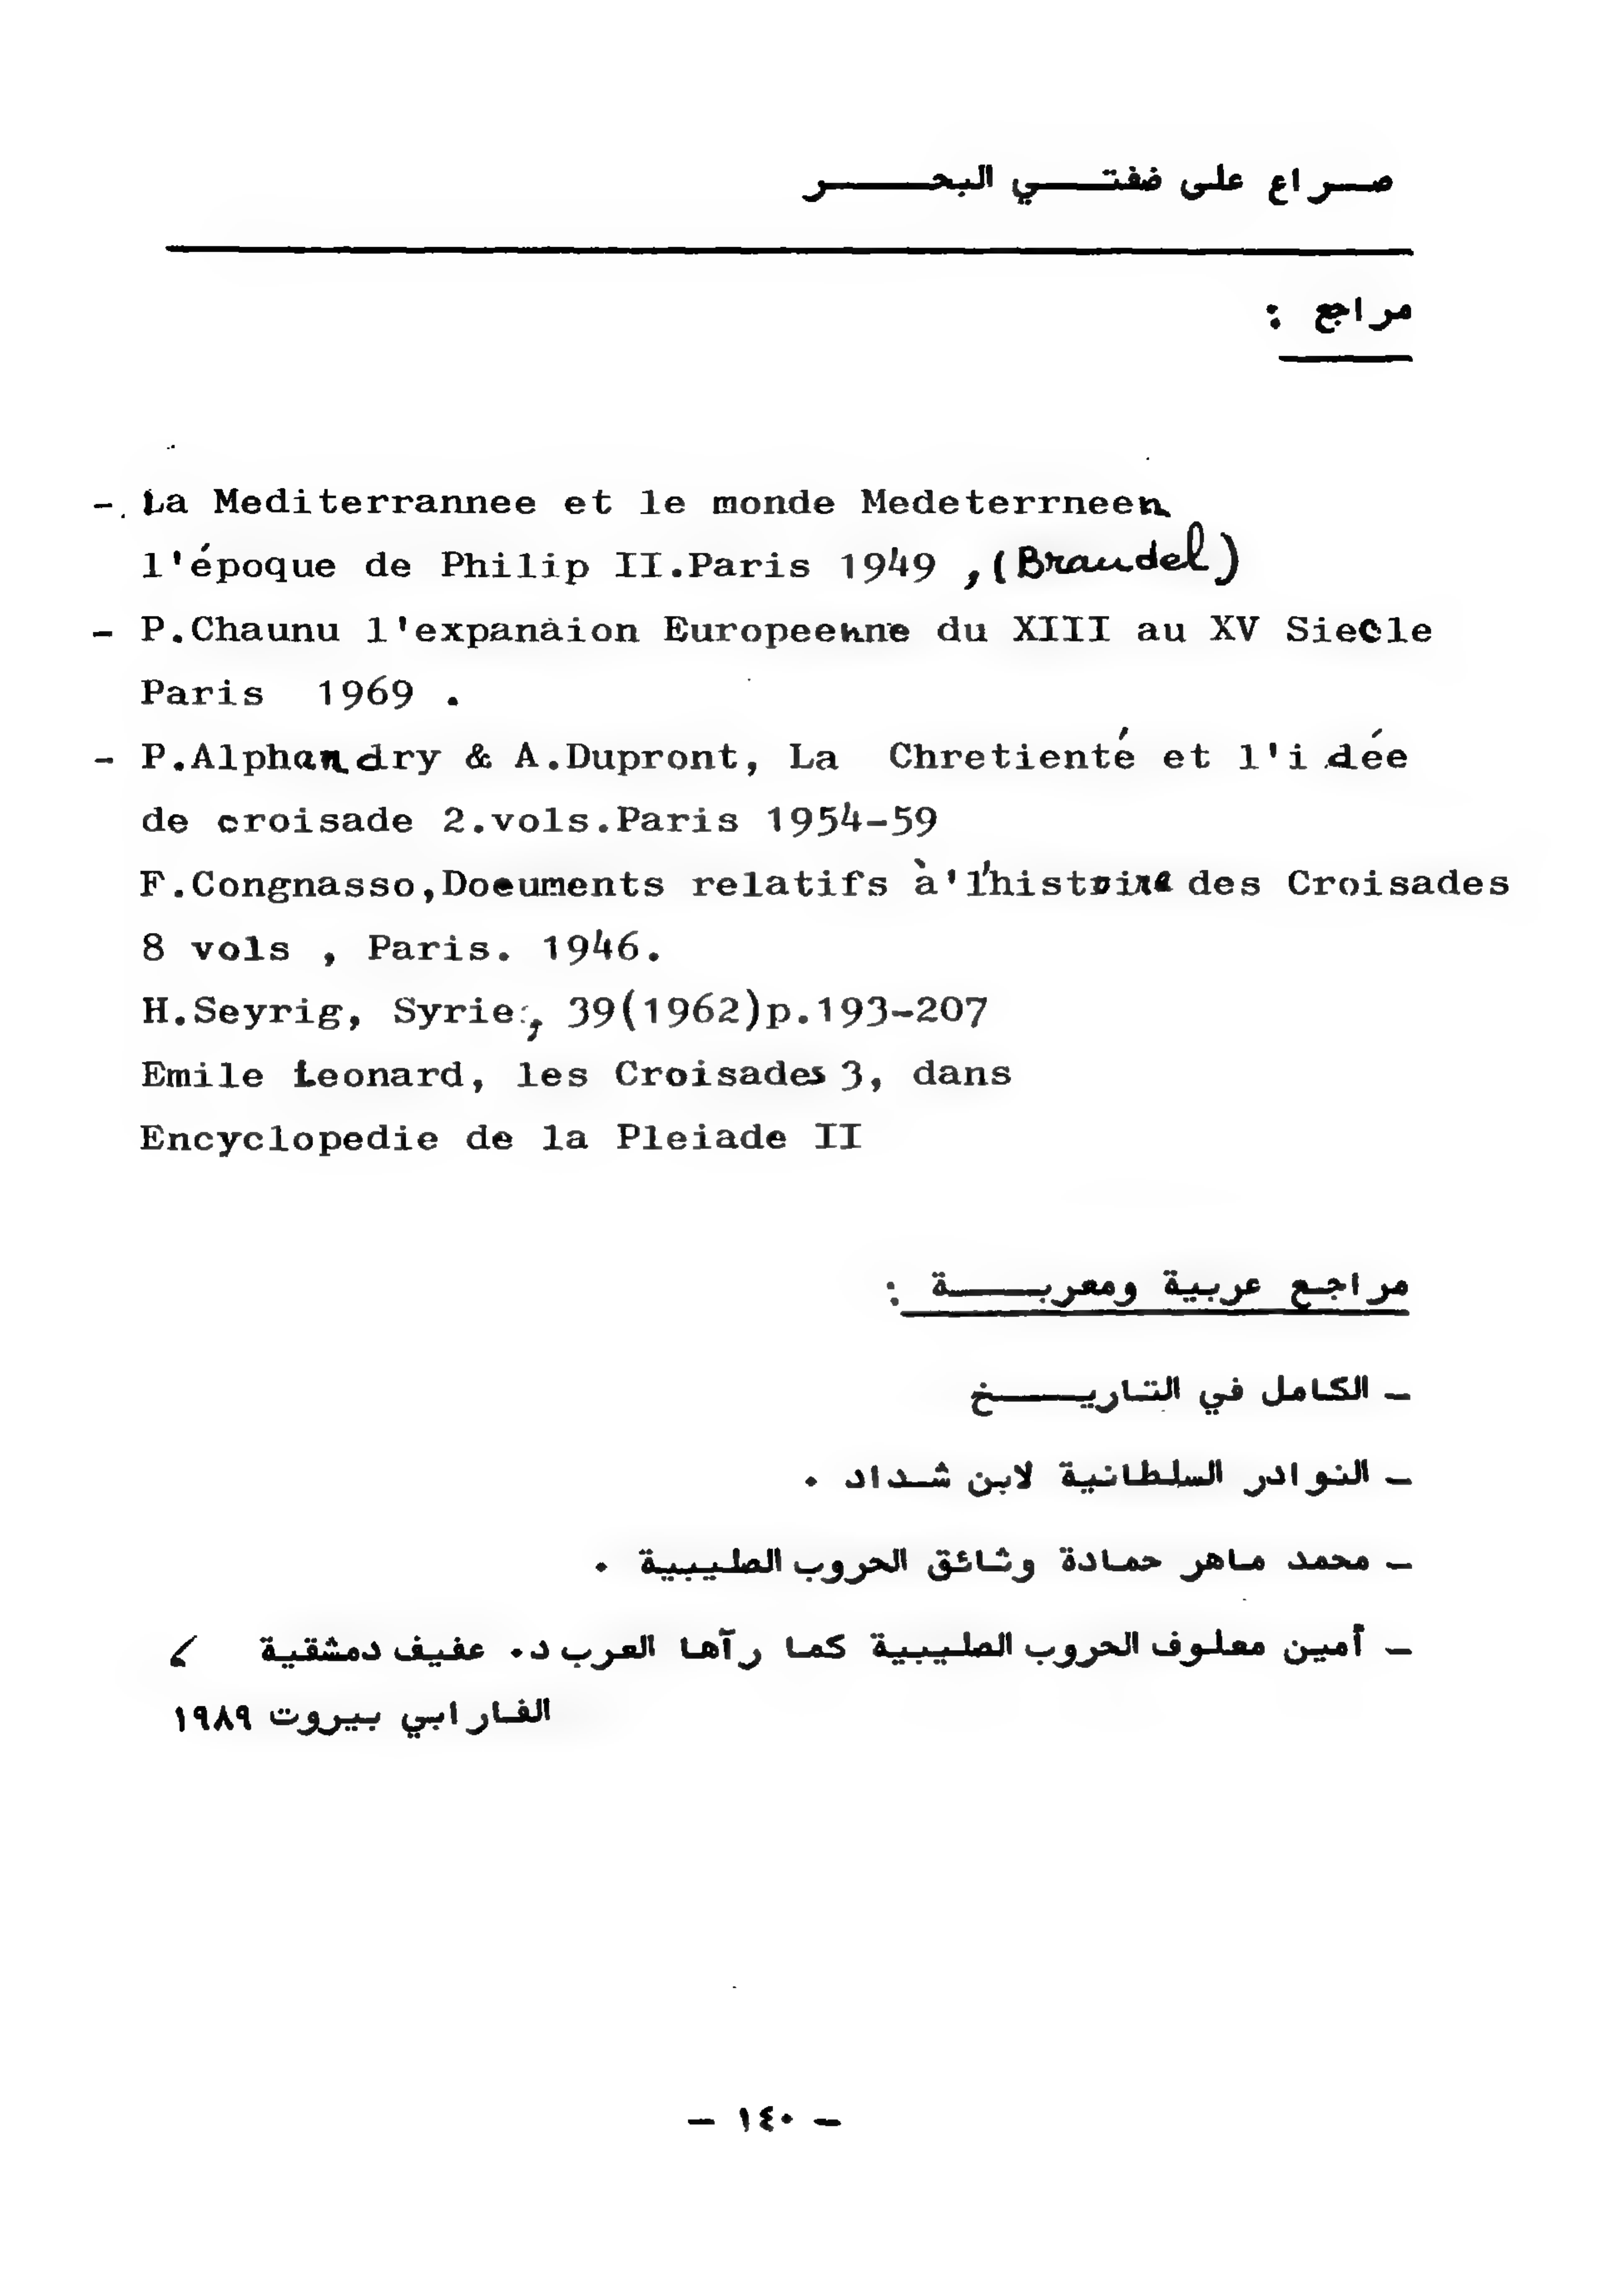 صراع على ضفتي البحر
مراجع :
- La Mediterrannee et le monde Medeterrneen
l'époque de Philip II.Paris 1949 ,(Braudel)
- P.Chaunu l'expanàion Europeenne du XIII au XV Siecle
Paris 1969 .
- P.Alphandry & A.Dupront, La Chretienté et l'i dée
de croisade 2.vols.Paris 1954-59
F.Congnasso,Documents relatifs à'l'histoire des Croisades
8 vols , Paris. 1946.
H.Seyrig, Syrie, 39(1962)p.193-207
Emile Leonard, les Croisades 3, dans
Encyclopedie de la Pleiade II
مراجع عربية ومعربة :
- الكامل في التاريخ
- النوادر السلطانية لابن شداد .
- محمد ماهر حمادة وثائق الحروب الصليبية .
- أمين معلوف الحروب الصليبية كما رآها العرب د. عفيف دمشقية ،
الفارابي بيروت ١٩٨٩
- ١٤٠ -